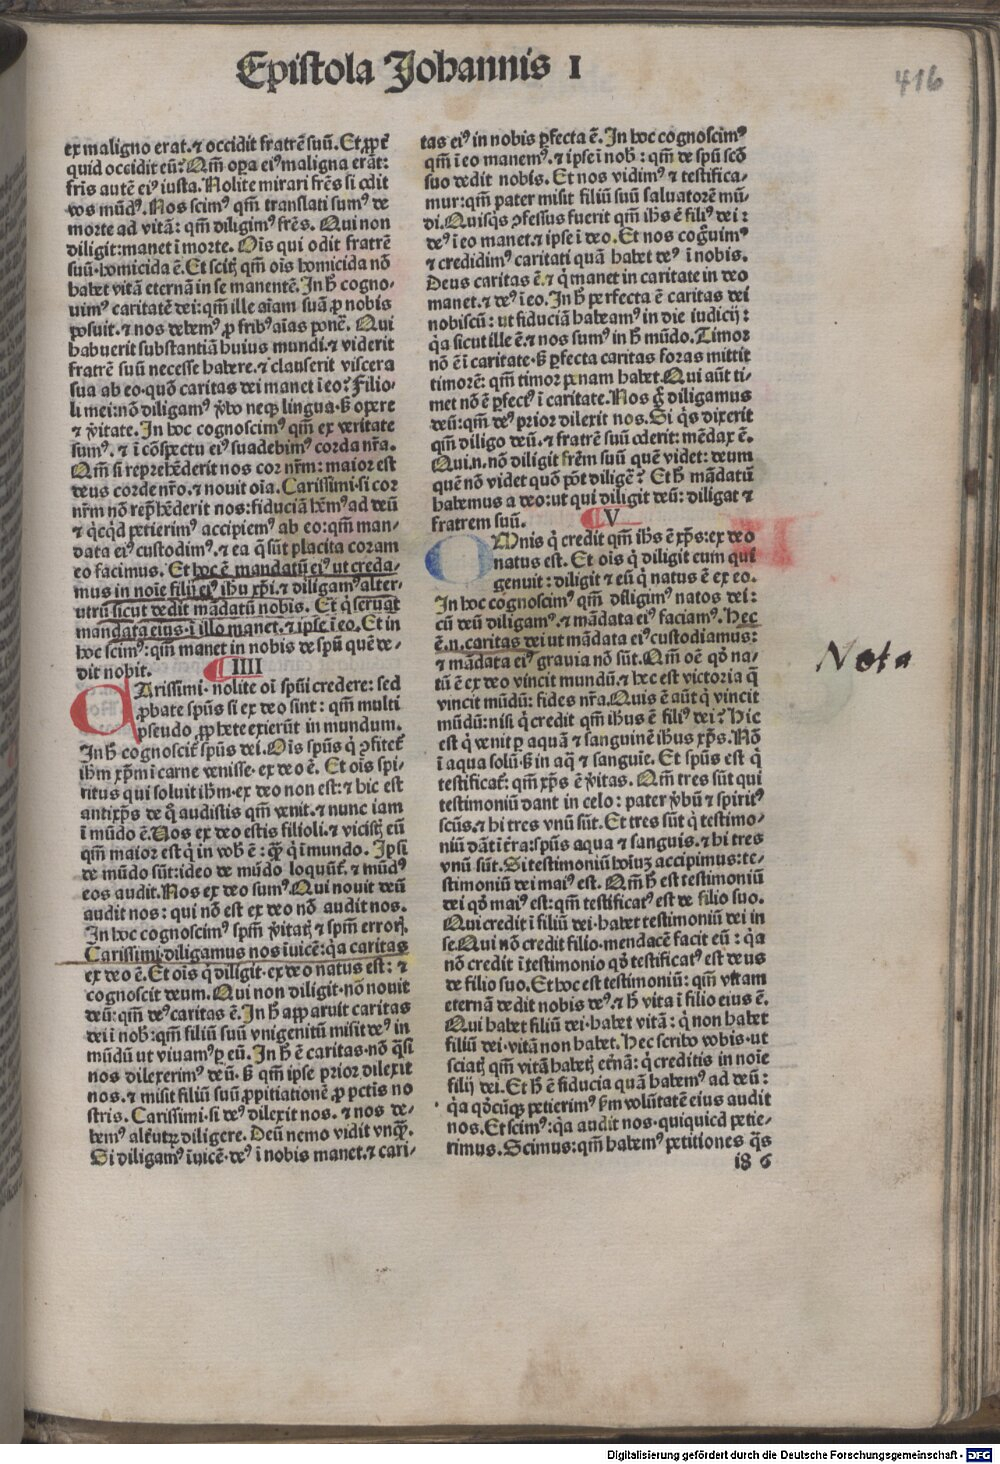 Epistola Johannis I
416
ex maligno erat. ⁊ occidit fratrē suū. Et ꝓpt̄
quid occidit eū? Qm̄ oꝑa eiꝰ maligna erāt:
fris autē eiꝰ iusta. Nolite mirari frēs si odit
vos mūdꝰ. Nos scimꝰ qm̄ translati sumꝰ de
morte ad vitā: qm̄ diligimꝰ frēs. Qui non
diligit: manet ī morte. Oīs qui odit fratrē
suū. homicida ē. Et scitꝭ qm̄ oīs homicida nō
habet vitā eternā in se manentē. In h̄ cogno-
uimꝰ caritatē dei: qm̄ ille aīam suā ꝓ nobis
posuit. ⁊ nos debemꝰ ꝓ fribꝰ aīas ponē. Qui
habuerit substantiā huius mundi. ⁊ viderit
fratrē suū necesse habere. ⁊ clauserit viscera
sua ab eo. quō caritas dei manet ī eo? Filio-
li mei: nō diligamꝰ ꝟbo neqꝫ lingua. sꝫ opere
⁊ ꝟitate. In hoc cognoscimꝰ qm̄ ex veritate
sumꝰ. ⁊ ī cōspectu eiꝰ suadebimꝰ corda nr̄a.
Qm̄ si reprehēderit nos cor nrm̄: maior est
deus corde nr̄o. ⁊ nouit oīa. Carissimi. si cor
nrm̄ nō rep̄hēderit nos: fiduciā hēmꝰ ad deū
⁊ q̇cq̇d petierimꝰ accipiemꝰ ab eo: qm̄ man-
data eiꝰ custodimꝰ. ⁊ ea q̄ sūt placita coram
eo facimus. Et hoc ē mandatū eiꝰ ut creda-
mus in noīe filij eiꝰ ihū xp̄i. ⁊ diligamꝰ alter-
utrū sicut dedit mādatū nobis. Et q̇ seruat
mandata eius. ī illo manet. ⁊ ipse ī eo. Et in
hoc scimꝰ: qm̄ manet in nobis de spū quē de-
dit nobit. IIII
CArissimi. nolite oī spūi credere: sed
ꝓbate spūs si ex deo sint: qm̄ multi
pseudo ꝓphete exierūt in mundum.
In h̄ cognoscit̄ spūs dei. Oīs spūs q̇ ꝯfitet̄
ihm̄ xpm̄ ī carne venisse. ex deo ē. Et oīs spi-
ritus qui soluit ihm̄. ex deo non est: ⁊ hic est
antixp̄s de q̄ audistis qm̄ venit. ⁊ nunc iam
ī mūdo ē. Uos ex deo estis filioli. ⁊ vicistꝭ eū
qm̄ maior est q̇ in vob̄ ē: qꝫ q̇ ī mundo. Ipsi
de mūdo sūt: ideo de mūdo loquūt̄. ⁊ mūdꝰ
eos audit. Nos ex deo sumꝰ. Qui nouit deū
audit nos: qui nō est ex deo nō audit nos.
In hoc cognoscimꝰ spm̄ ꝟitatꝭ ⁊ spm̄ errorꝭ.
Carissimi. diligamus nos īuicē: q̇a caritas
ex deo ē. Et oīs q̇ diligit. ex deo natus est: ⁊
cognoscit deum. Qui non diligit. nō nouit
deū: qm̄ deꝰ caritas ē. In h̄ apparuit caritas
dei ī nob̄: qm̄ filiū suū vnigenitū misit deꝰ in
mūdū ut viuamꝰ ꝑ eū. In h̄ ē caritas. nō q̄si
nos dilexerimꝰ deū. sꝫ qm̄ ipse prior dilexit
nos. ⁊ misit filiū suū ꝓpitiationē ꝓ pctis no
stris. Carissimi. si deꝰ dilexit nos. ⁊ nos de-
bemꝰ alt̄utrꝫ diligere. Deū nemo vidit vnqꝫ.
Si diligamꝰ īuicē. deꝰ ī nobis manet. ⁊ cari-
tas eiꝰ in nobis ꝑfecta ē. In hoc cognoscimꝰ
qm̄ ī eo manemꝰ. ⁊ ipse ī nob̄: qm̄ de spū scō
suo dedit nobis. Et nos vidimꝰ ⁊ testifica-
mur: qm̄ pater misit filiū suū saluatorē mū-
di. Quisq̇s ꝯfessus fuerit qm̄ ihs̄ ē filiꝰ dei:
deꝰ ī eo manet. ⁊ ipse ī deo. Et nos coḡuimꝰ
⁊ credidimꝰ caritati quā habet deꝰ ī nobis.
Deus caritas ē. ⁊ q̇ manet in caritate in deo
manet. ⁊ deꝰ ī eo. In h̄ perfecta ē caritas dei
nobiscū: ut fiduciā habeamꝰ in die iudicij:
q̇a sicut ille ē. ⁊ nos sumꝰ in h̄ mūdo. Timor
nō ē ī caritate. sꝫ ꝑfecta caritas foras mittit
timorē: qm̄ timor penam habet. Qui aūt ti-
met nō ē ꝑfectꝰ ī caritate. Nos g̊ diligamus
deū: qm̄ deꝰ prior dilexit nos. Si q̇s dixerit
qm̄ diligo deū. ⁊ fratrē suū oderit: mēdax ē.
Qui .n. nō diligit frēm suū quē videt: deum
quē nō videt quō pōt diligē? Et h̄ mādatū
habemus a deo: ut qui diligit deū: diligat ⁊
fratrem suū. V
OMnis q̇ credit qm̄ ihs̄ ē xp̄s: ex deo
natus est. Et oīs q̇ diligit eum qui
genuit: diligit ⁊ eū q̇ natus ē ex eo.
In hoc cognoscimꝰ qm̄ diligimꝰ natos dei:
cū deū diligamꝰ. ⁊ mādata eiꝰ faciamꝰ. Hec
ē .n. caritas dei ut mādata eiꝰ custodiamus:
⁊ mādata eiꝰ grauia nō sūt. Qm̄ oē qd̄ na-
tū ē ex deo vincit mundū. ⁊ hec est victoria q̄
vincit mūdū: fides nr̄a. Quis ē aūt q̇ vincit
mūdū: nisi q̇ credit qm̄ ihūs ē filiꝰ dei? Hic
est q̇ venit ꝑ aquā ⁊ sanguinē ihūs xp̄s. Nō
ī aqua solū. sꝫ in aq̄ ⁊ sanguīe. Et spūs est q̇
testificat̄: qm̄ xp̄s ē ꝟitas. Qm̄ tres sūt qui
testimoniū dant in celo: pater ꝟbū ⁊ spiritꝰ
scūs. ⁊ hi tres vnū sūt. Et tres sūt q̇ testimo-
niū dāt ī t̄ra: spūs aqua ⁊ sanguis. ⁊ hi tres
vnū sūt. Si testimoniū hoīuꝫ accipimus: te-
stimoniū dei maiꝰ est. Qm̄ h̄ est testimoniū
dei qd̄ maiꝰ est: qm̄ testificatꝰ est de filio suo.
Qui credit ī filiū dei. habet testimoniū dei in
se. Qui nō credit filio. mendacē facit eū: q̇a
nō credit ī testimonio qd̄ testificatꝰ est deus
de filio suo. Et hoc est testimoniū: qm̄ vitam
eternā dedit nobis deꝰ. ⁊ h̄ vita ī filio eius ē.
Qui habet filiū dei. habet vitā: q̇ non habet
filiū dei. vitā non habet. Hec scribo vobis. ut
sciatꝭ qm̄ vitā habetꝭ et̄nā: q̇ creditis in noīe
filij dei. Et h̄ ē fiducia quā habemꝰ ad deū:
q̇a qd̄cūqꝫ petierimꝰ ẜm volūtatē eius audit
nos. Et scimꝰ: q̇a audit nos. quiquicd petie-
rimus. Scimus: qm̄ habemꝰ petitiones q̄s
Nota
i8 6
Digitalisierung gefördert durch die Deutsche Forschungsgemeinschaft - DFG